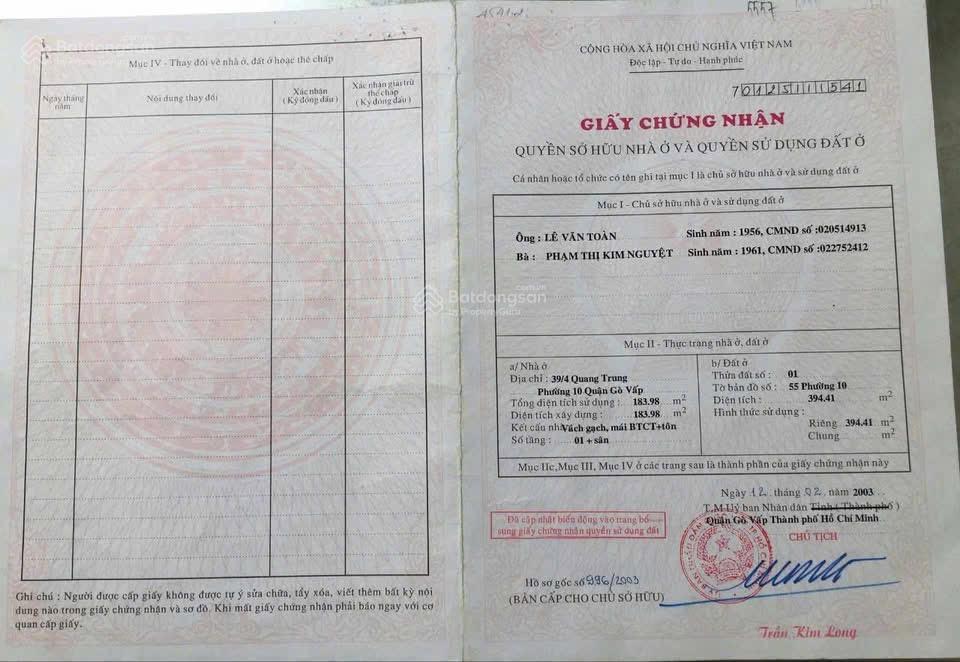 Mục IV - Thay đổi về nhà ở, đất ở hoặc thế chấp
Ngày tháng năm
Nội dung thay đổi
Xác nhận
(Ký đóng dấu)
Xác nhận giải trừ
thế chấp
(Ký đóng dấu)
Ghi chú : Người được cấp giấy không được tự ý sửa chữa, tẩy xóa, viết thêm bất kỳ nội
dung nào trong giấy chứng nhận và sơ đồ. Khi mất giấy chứng nhận phải báo ngay với cơ
quan cấp giấy.
Batdongsan
.com.vn
by PropertyGuru
CỘNG HÒA XÃ HỘI CHỦ NGHĨA VIỆT NAM
Độc lập - Tự do - Hạnh phúc
GIẤY CHỨNG NHẬN
QUYỀN SỞ HỮU NHÀ Ở VÀ QUYỀN SỬ DỤNG ĐẤT Ở
Cá nhân hoặc tổ chức có tên ghi tại mục I là chủ sở hữu nhà ở và sử dụng đất ở
Mục I - Chủ sở hữu nhà ở và sử dụng đất ở
Ông : LÊ VĂN TOÀN Sinh năm : 1956, CMND số :020514913
Bà : PHẠM THỊ KIM NGUYỆT Sinh năm : 1961, CMND số :022752412
Mục II - Thực trạng nhà ở, đất ở
a/ Nhà ở
Địa chỉ : 39/4 Quang Trung
Phường 10 Quận Gò Vấp
Tổng diện tích sử dụng : 183.98 m2
Diện tích xây dựng : 183.98 m2
Kết cấu nhà Vách gạch, mái BTCT+tôn
Số tầng : 01 + sân
b/ Đất ở
Thửa đất số : 01
Tờ bản đồ số : 55 Phường 10
Diện tích : 394.41 m2
Hình thức sử dụng :
Riêng 394.41 m2
Chung m2
Mục IIc, Mục III, Mục IV ở các trang sau là thành phần của giấy chứng nhận này
Ngày 12 tháng 02 năm 2003
T.M Uỷ ban Nhân dân Tỉnh ( Thành phố )
Quận Gò Vấp Thành phố Hồ Chí Minh
CHỦ TỊCH
Đã cập nhật biến động vào trang bổ
sung giấy chứng nhận quyền sử dụng đất
Hồ sơ gốc số 996/2003
(BẢN CẤP CHO CHỦ SỞ HỮU)
Trần Kim Long